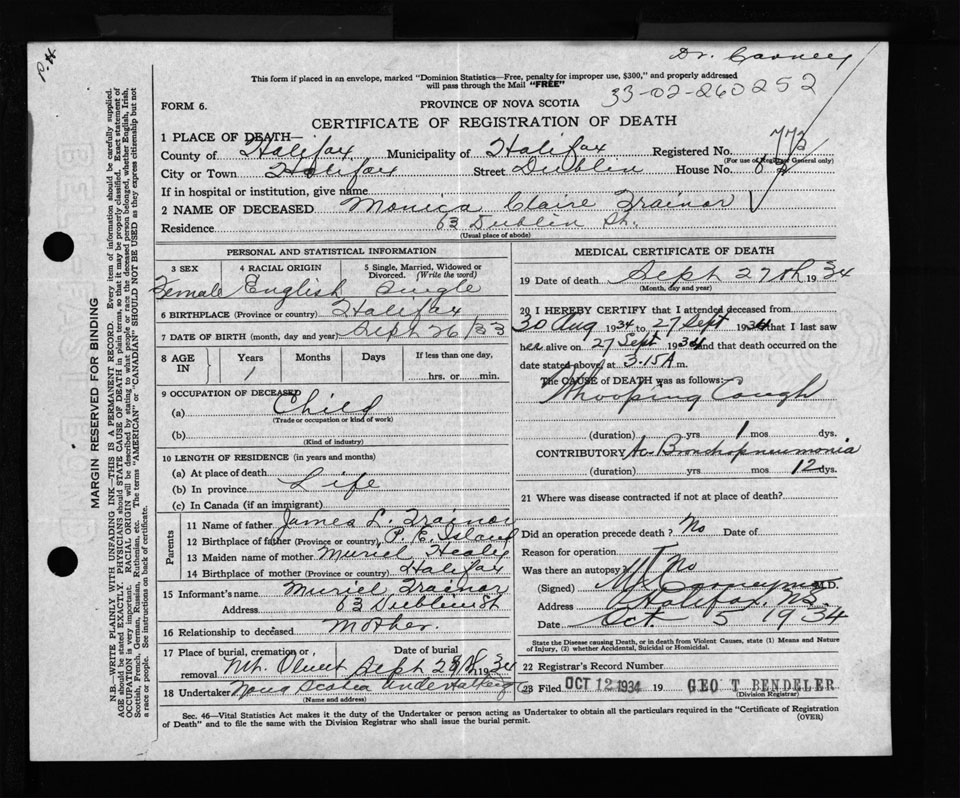 Dr. Carney
P.H
This form if placed in an envelope, marked "Dominion Statistics—Free, penalty for improper use, $300," and properly addressed
will pass through the Mail "FREE"
33-02-260252
FORM 6.
PROVINCE OF NOVA SCOTIA
CERTIFICATE OF REGISTRATION OF DEATH
1 PLACE OF DEATH—
County of Halifax Municipality of Halifax Registered No. 773
(For use of Registrar General only)
City or Town Halifax Street Dublin House No.
If in hospital or institution, give name
2 NAME OF DECEASED Monica Claire Trainor
Residence 63 Dublin St.
(Usual place of abode)
MARGIN RESERVED FOR BINDING
N.B.—WRITE PLAINLY WITH UNFADING INK—THIS IS A PERMANENT RECORD. Every item of information should be carefully supplied.
AGE should be stated EXACTLY. PHYSICIANS should STATE CAUSE OF DEATH in plain terms, so that it may be properly classified. Exact statement of
OCCUPATION is very important. RACIAL ORIGIN will be described by stating to what people or race the deceased person belonged, whether English, Irish,
Scottish, French, German, Russian, Ruthenian, etc. The terms "AMERICAN" or "CANADIAN" SHOULD NOT BE USED as they express citizenship but not
a race or people. See instructions on back of certificate.
PERSONAL AND STATISTICAL INFORMATION
3 SEX 4 RACIAL ORIGIN 5 Single, Married, Widowed or
Divorced. (Write the word)
Female English Single
6 BIRTHPLACE (Province or country) Halifax
7 DATE OF BIRTH (month, day and year) Sept 26/33
8 AGE IN Years Months Days If less than one day,
1 hrs. or min.
9 OCCUPATION OF DECEASED
(a) Child
(Trade or occupation or kind of work)
(b)
(Kind of industry)
10 LENGTH OF RESIDENCE (in years and months)
(a) At place of death
(b) In province Life
(c) In Canada (if an immigrant)
Parents
11 Name of father James L. Trainor
12 Birthplace of father (Province or country) P. E. Island
13 Maiden name of mother Muriel Healy
14 Birthplace of mother (Province or country) Halifax
15 Informant's name Muriel Trainor
Address 63 Dublin St
16 Relationship to deceased Mother.
17 Place of burial, cremation or removal Date of burial
Mt. Olivet Sept 28th 1934
18 Undertaker Nova Scotia Undertaking
(Name and address)
MEDICAL CERTIFICATE OF DEATH
19 Date of death Sept 27th 1934
(Month, day and year)
20 I HEREBY CERTIFY that I attended deceased from
30 Aug 1934 to 27 Sept 1934 that I last saw
her alive on 27 Sept 1934 and that death occurred on the
date stated above, at 3.15 A m.
The CAUSE of DEATH was as follows:
Whooping Cough
(duration) yrs 1 mos dys.
CONTRIBUTORY Ac. Bronchopneumonia
(duration) yrs mos 12 dys.
21 Where was disease contracted if not at place of death?
Did an operation precede death? No Date of
Reason for operation
Was there an autopsy? No
(Signed) Carney M.D.
Address Halifax, NS
Date Oct 5 1934
State the Disease causing Death, or in death from Violent Causes, state (1) Means and Nature
of Injury, (2) whether Accidental, Suicidal or Homicidal.
22 Registrar's Record Number
23 Filed OCT 12 1934 19 GEO T BENDELER
(Division Registrar)
Sec. 46—Vital Statistics Act makes it the duty of the Undertaker or person acting as Undertaker to obtain all the particulars required in the "Certificate of Registration
of Death" and to file the same with the Division Registrar who shall issue the burial permit. (OVER)